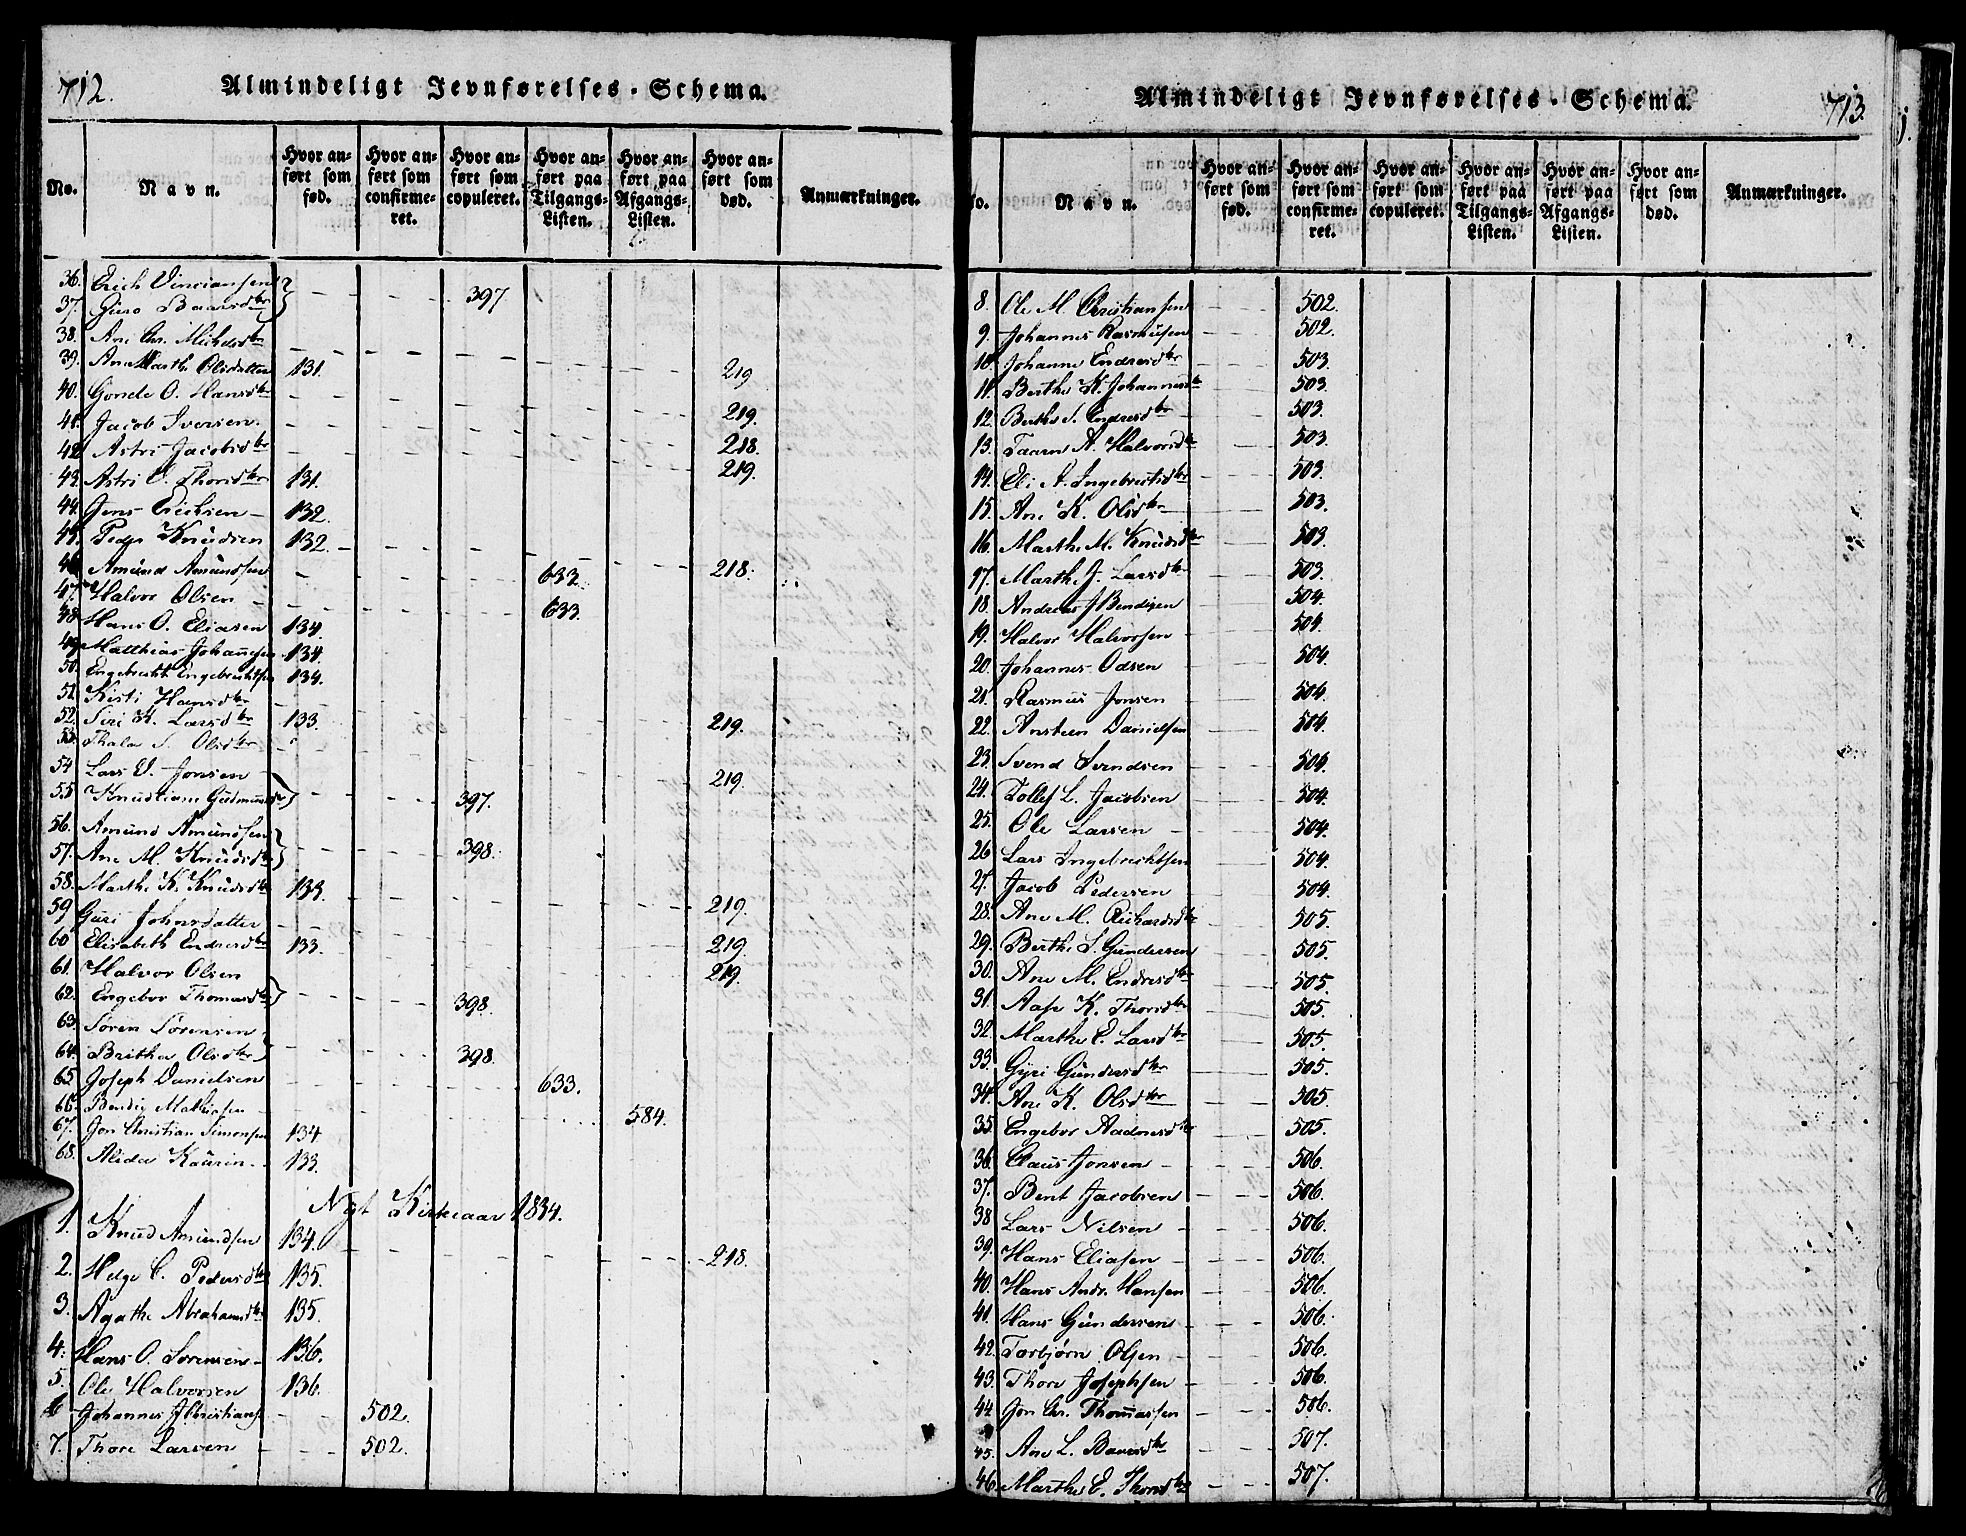 712.
Almindeligt Jevnførelses-Schema.
No. Navn. Hvor anført som fød. Hvor anført som confirmeret. Hvor anført som copuleret. Hvor anført paa Tilgangs-Listen. Hvor anført paa Afgangs-Listen. Hvor anført som død. Anmærkninger.
36. Erich Vinciansen
37. Guro Baarsdtr 397
38. Ane Chr. Michelsdtr
39. Ane Marthe Olsdatter 131. 219
40. Gonde O. Hansdtr
41. Jacob Iversen. 219.
42. Astri Jacobsdtr 218.
43. Astri O. Thorsdtr 131. 219.
44. Jens Erichsen 132.
45. Peder Knudsen 132.
46. Amund Amundsen 633. 218.
47. Halvor Olsen 633.
48. Hans O. Eliasen 134.
49. Matthias Johannesen 134.
50. Engebrecht Engebrechtsen 134.
51. Kirsti Hansdtr
52. Siri K. Larsdtr 133. 219.
53. Olsdtr
54. Lars O. Jonsen 219.
55. Knudtiane Gudmunds 397.
56. Amund Amundsen
57. Ane M. Knudsdtr 398.
58. Marthe K. Knudsdtr 133.
59. Guri Johnsdatter 219.
60. Elisabeth Endresdtr 133. 219
61. Halvor Olsen 219.
62. Engebor Thomasdtr 398.
63. Søren Sørensen
64. Britha Olsdtr 398.
65. Joseph Danielsen 633.
66. Bendix Mathiesen 584.
67. Jon Christian Simonsen 134
68. Alida Kaurin 133.
Nyt Kirkeaar 1834.
1. Knud Amundsen 134.
2. Helge C. Pedersdtr 135. 218.
3. Agathe Abrahamsdtr 135.
4. Hans O. Sørensen 136.
5. Ole Halvorsen 136.
6. Johannes J Christians. 502.
7. Thore Larsen 502.
713.
Almindeligt Jevnførelses-Schema.
No. Navn. Hvor anført som fød. Hvor anført som confirmeret. Hvor anført som copuleret. Hvor anført paa Tilgangs-Listen. Hvor anført paa Afgangs-Listen. Hvor anført som død. Anmærkninger.
8. Ole M. Christiansen 502.
9. Johannes Rasmusen 502.
10. Johanne Endresdtr 503
11. Berthe K. Johannesdtr 503.
12. Berthe S. Endresdtr 503.
13. Taarn A. Halvorsdtr 503.
14. Eli A. Ingebrectsdtr 503.
15. Ane K. Olsdtr 503.
16. Marthe M. Knudsdtr 503.
17. Marthe J. Larsdtr 503.
18. Andreas J Bendixen 504.
19. Halvor Halvorsen 504.
20. Johannes Odsen 504.
21. Rasmus Jonsen 504.
22. Ansteen Danielsen 504.
23. Svend Svendsen 504.
24. Tollef L. Jacobsen 504.
25. Ole Larsen 504.
26. Lars Ingebrechtsen 504.
27. Jacob Pedersen 504.
28. Ane M. Richardsdtr 505.
29. Berthe S. Gundersen 505.
30. Ane M. Endresdtr 505.
31. Aase K. Thorsdtr 505.
32. Marthe E. Larsdtr 505.
33. Gyri Gundersdtr 505.
34. Ane K. Olsdtr 505.
35. Engebor Aadnesdtr 505.
36. Claus Jonsen 506.
37. Bent Jacobsen 506.
38 Lars Nilsen 506.
39. Hans Eliasen 506.
40. Hans Andr. Hansen 506.
41. Hans Gundersen 506.
42. Torbjørn Olsen 506.
43. Thore Josephsen 506.
44 Jon Chr. Thomassen 506.
45. Ane L. Baarsdtr 507.
46. Marthe E. Thorsdtr 507.